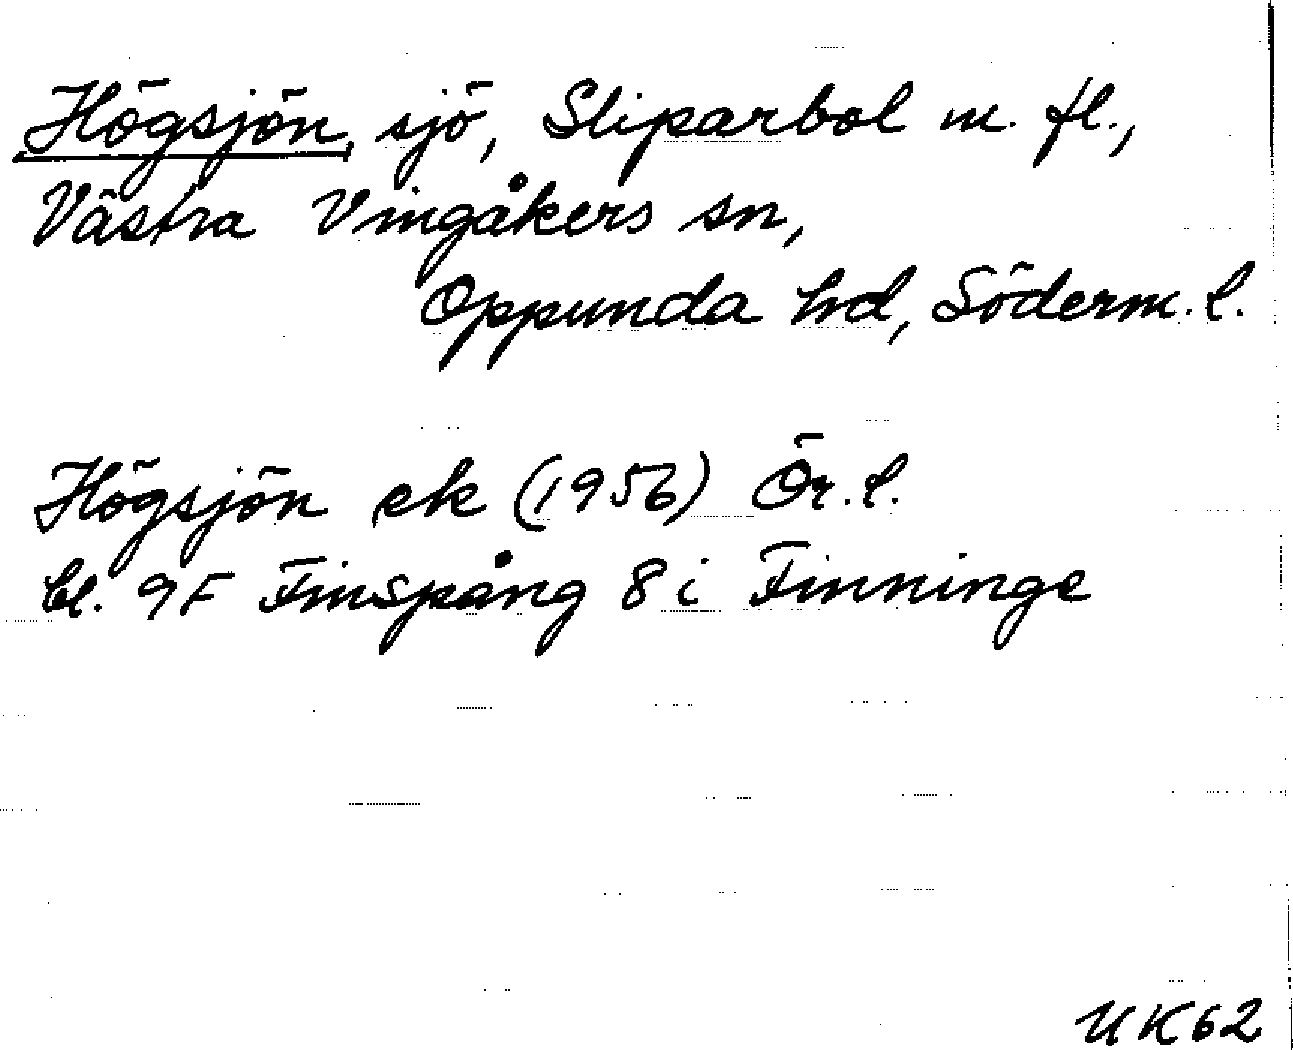 Högsjön, sjö, Sliparbol m. fl.,
Västra Vingåkers sn,
Oppunda hd, Söderm. l.
Högsjön ek (1956) Ör. l.
bl. 9F Finspång 8 i Finninge
UK62